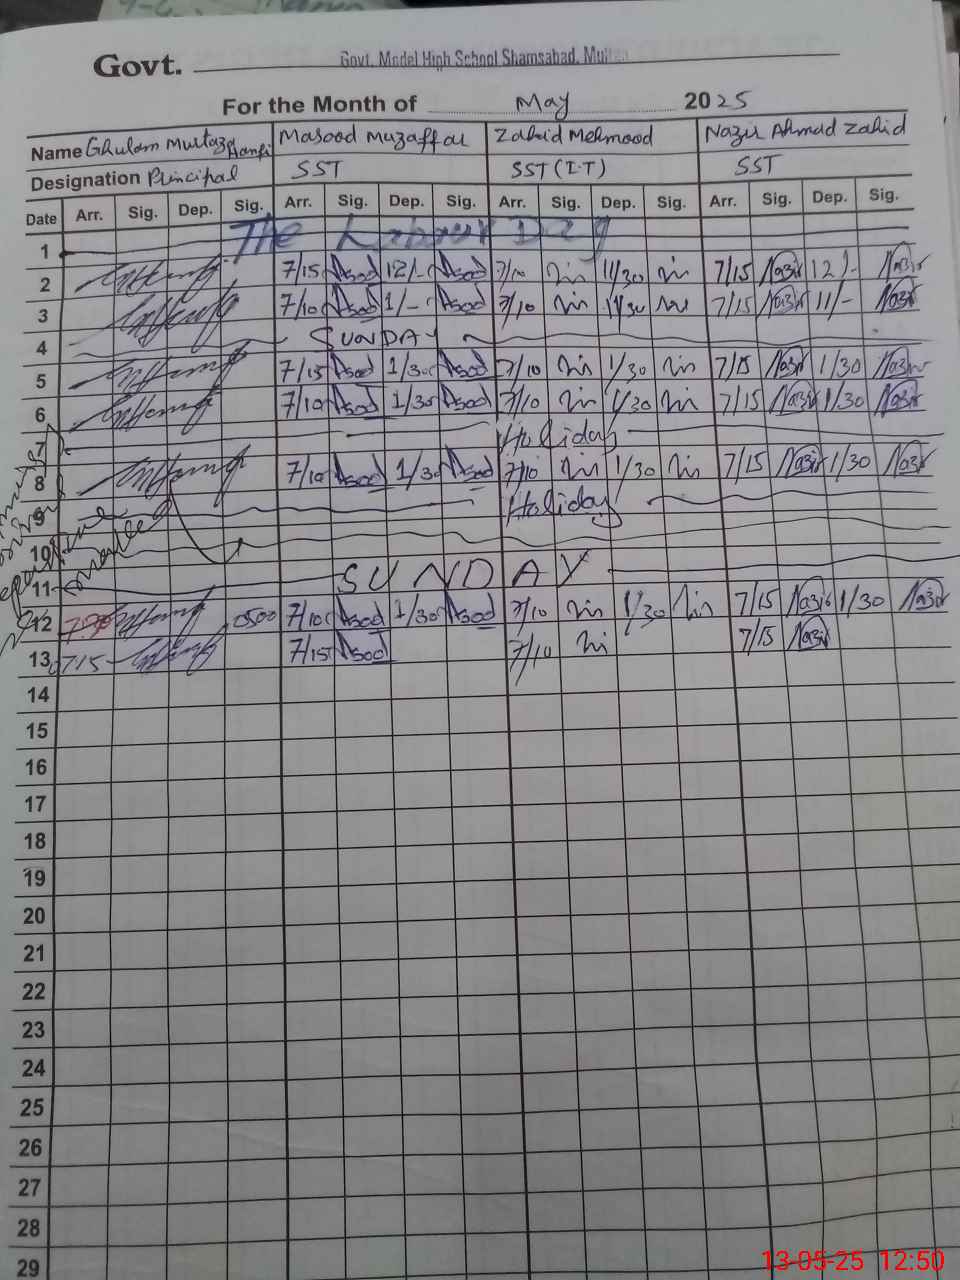 Govt. Govt. Model High School Shamsabad, Multan
For the Month of May 2025
Name Ghulam Murtaza Masood Muzaffar Zahid Mehmood Nazir Ahmad Zahid
Designation Principal SST SST (I.T) SST
Date Arr. Sig. Dep. Sig. Arr. Sig. Dep. Sig. Arr. Sig. Dep. Sig. Arr. Sig. Dep. Sig.
1 The Labour Day
2 7/15 Asod 12/- Asod 7/10 11/30 7/15 Nazir 12/- Nazir
3 7/10 Asod 1/- Asod 7/10 11/30 7/15 Nazir 11/- Nazir
4 SUNDAY
5 7/15 Asod 1/30 Asod 7/10 1/30 7/15 Nazir 1/30 Nazir
6 7/10 Asod 1/30 Asod 7/10 1/30 7/15 Nazir 1/30 Nazir
7 Holiday
8 7/10 Asod 1/30 Asod 7/10 1/30 7/15 Nazir 1/30 Nazir
9 Holiday
10
11 SUNDAY
12 0500 7/10 Asod 1/30 Asod 7/10 1/30 7/15 Nazir 1/30 Nazir
13 0715 7/15 Asod 7/10 7/15 Nazir
14
15
16
17
18
19
20
21
22
23
24
25
26
27
28
29
13-05-25 12:50